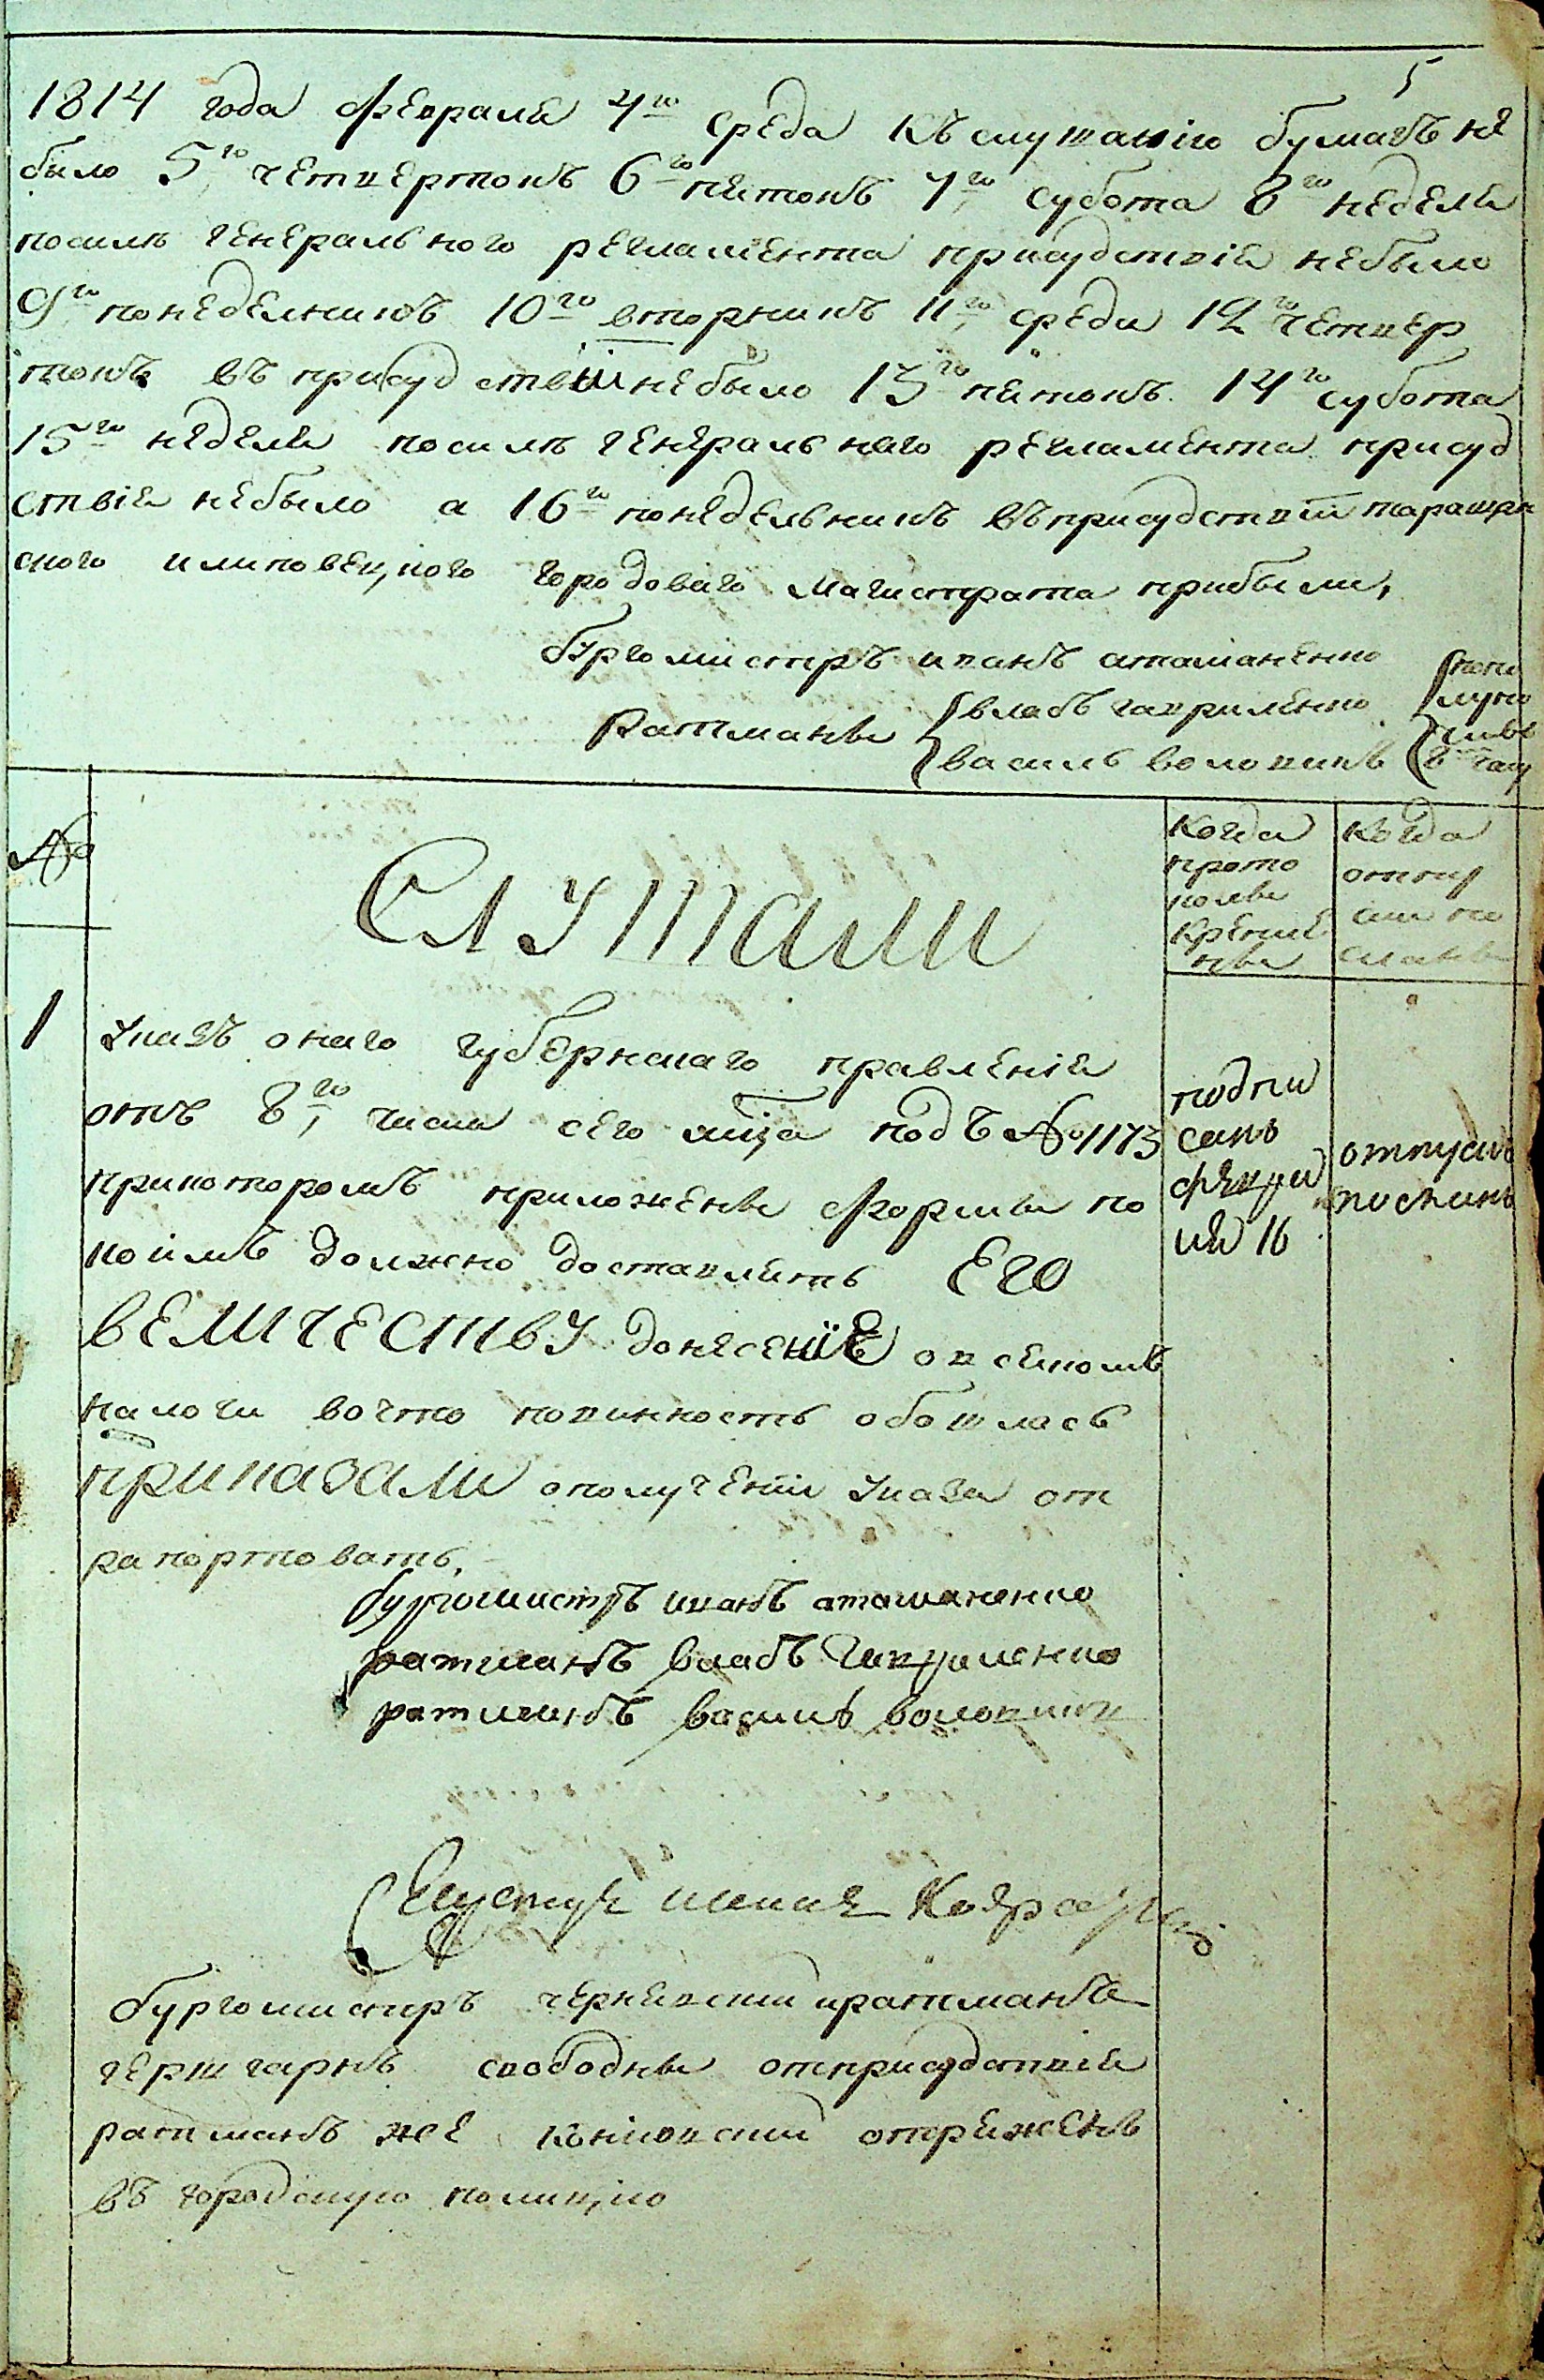 5
1814 года февраля 4го среда къ слушанiю бумагъ не
было 5го четвертокъ 6го пятокъ 7го субота 8го неделя
посиле генерального регламента присудствiя небыло
9го понеделникъ 10го вторникъ 11го среда 12го четвер
токъ въ присудствiи небыло 13го пятокъ 14го субота
15го неделя посиле генеральнаго регламента присуд
ствiя небыло а 16го понедельникъ въ присудствiи таращан
ского илиповецкого городоваго магистрата прибыли,
бургомистръ иванъ атаманенко
Ратманы
владъ гавриленко
василь воловикъ
№
Слушали
Когда
прото
колы
Крепле
ны
Когда
отпу
ски по
сланы
1
Указъ онаго губернскаго правленiя
отъ 8го, числа сего мца подъ №1173
прикоторомъ приложены формы по
коимъ должно доставлять Его
ВЕЛИЧЕСТВУ донесенiе овсякомъ
налоги вочто повинность обошлась
приказали ополученiи указа от
рапортовать,
подпи
санъ
февра
ля 16
отпускъ
посланъ
бургомистръ иванъ атаманенко
ратманъ владъ Гавриленко
ратманъ василь воловикъ
бургомистръ чернявскiи иратманъ
герш гарнъ свободны отприсудствiя
ратманъ же отряженъ
въ городскую полицiю